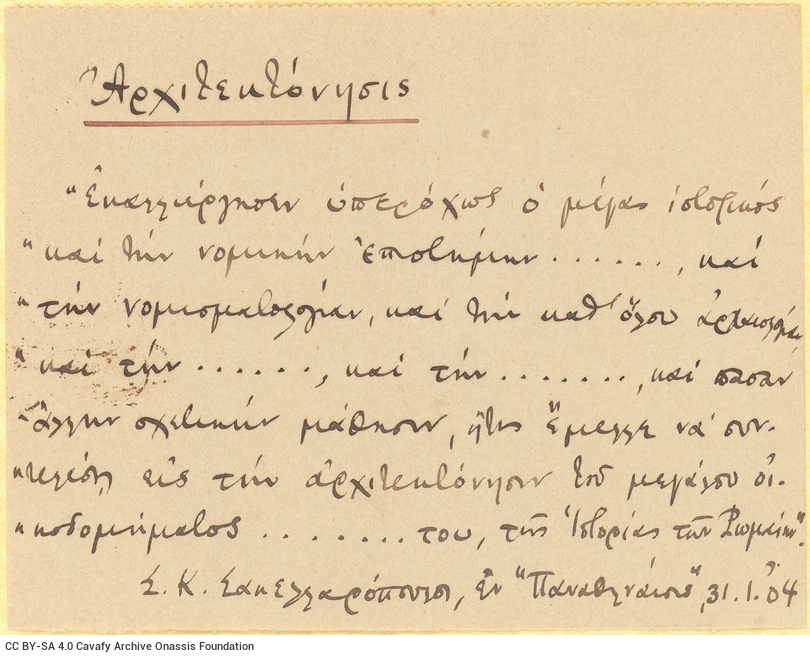 Ἀρχιτεκτόνησις
"Ἐκαλλιέργησεν ὑπερόχως ὁ μέγας ἱστορικός
"καί τήν νομικήν ἐπιστήμην . . . . . . , καί
"τήν νομισματολογίαν, καί τήν καθ' ὅλου ἀρχαιολογίαν
"καί τήν . . . . . . , καί τήν . . . . . . . , καί πᾶσαν
"ἄλλην σχετικήν μάθησιν, ἥτις ἔμελλε νά συν-
"τελέσῃ εἰς τήν ἀρχιτεκτόνησιν τοῦ μεγάλου οἰ-
"κοδομήματος . . . . . . . . του, τῆς Ἱστορίας τῶν Ῥωμαίων".
Σ. Κ. Σακελλαρόπουλος, ἐν "Παναθηναίοις", 31.1.04
CC BY-SA 4.0 Cavafy Archive Onassis Foundation